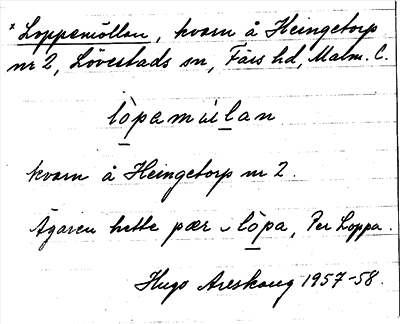 * Loppemöllan, kvarn å Heingetorp
nr 2, Lövestads sn, Färs hd, Malm. C.
lòpamúlan
kvarn å Heingetorp nr 2.
Ägaren hette pær lòpa, Per Loppa.
Hugo Areskoug 1957-58.